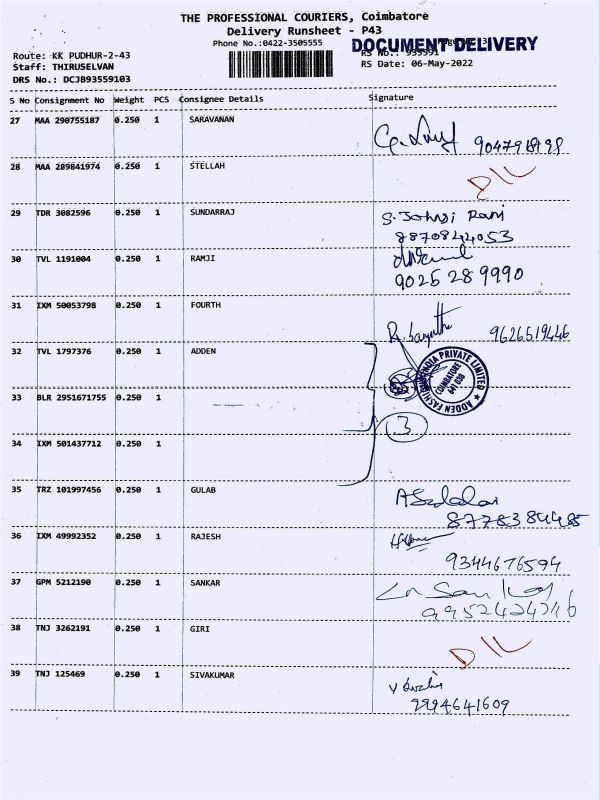 THE PROFESSIONAL COURIERS, Coimbatore
Delivery Runsheet - P43
Phone No.:0422-3505555
DOCUMENT DELIVERY
Route: KK PUDHUR-2-43
RS No.: 935591
Staff: THIRUSELVAN
RS Date: 06-May-2022
DRS No.: DCJB93559103
S No Consignment No Weight PCS Consignee Details Signature
27 MAA 290755187 0.250 1 SARAVANAN
28 MAA 289841974 0.250 1 STELLAH D/L
29 TDR 3082596 0.250 1 SUNDARRAJ S. Johnsi Rani
8870844053
30 TVL 1191004 0.250 1 RAMJI
9025 28 9990
31 IXM 50053798 0.250 1 FOURTH 9626519446
32 TVL 1797376 0.250 1 ADDEN
ADDEN FASHIONS INDIA PRIVATE LIMITED
COIMBATORE
641 038
33 BLR 2951671755 0.250 1
3
34 IXM 501437712 0.250 1
35 TRZ 101997456 0.250 1 GULAB
8778384485
36 IXM 49992352 0.250 1 RAJESH
9344676594
37 GPM 5212190 0.250 1 SANKAR
38 TNJ 3262191 0.250 1 GIRI D/L
39 TNJ 125469 0.250 1 SIVAKUMAR
9994641609